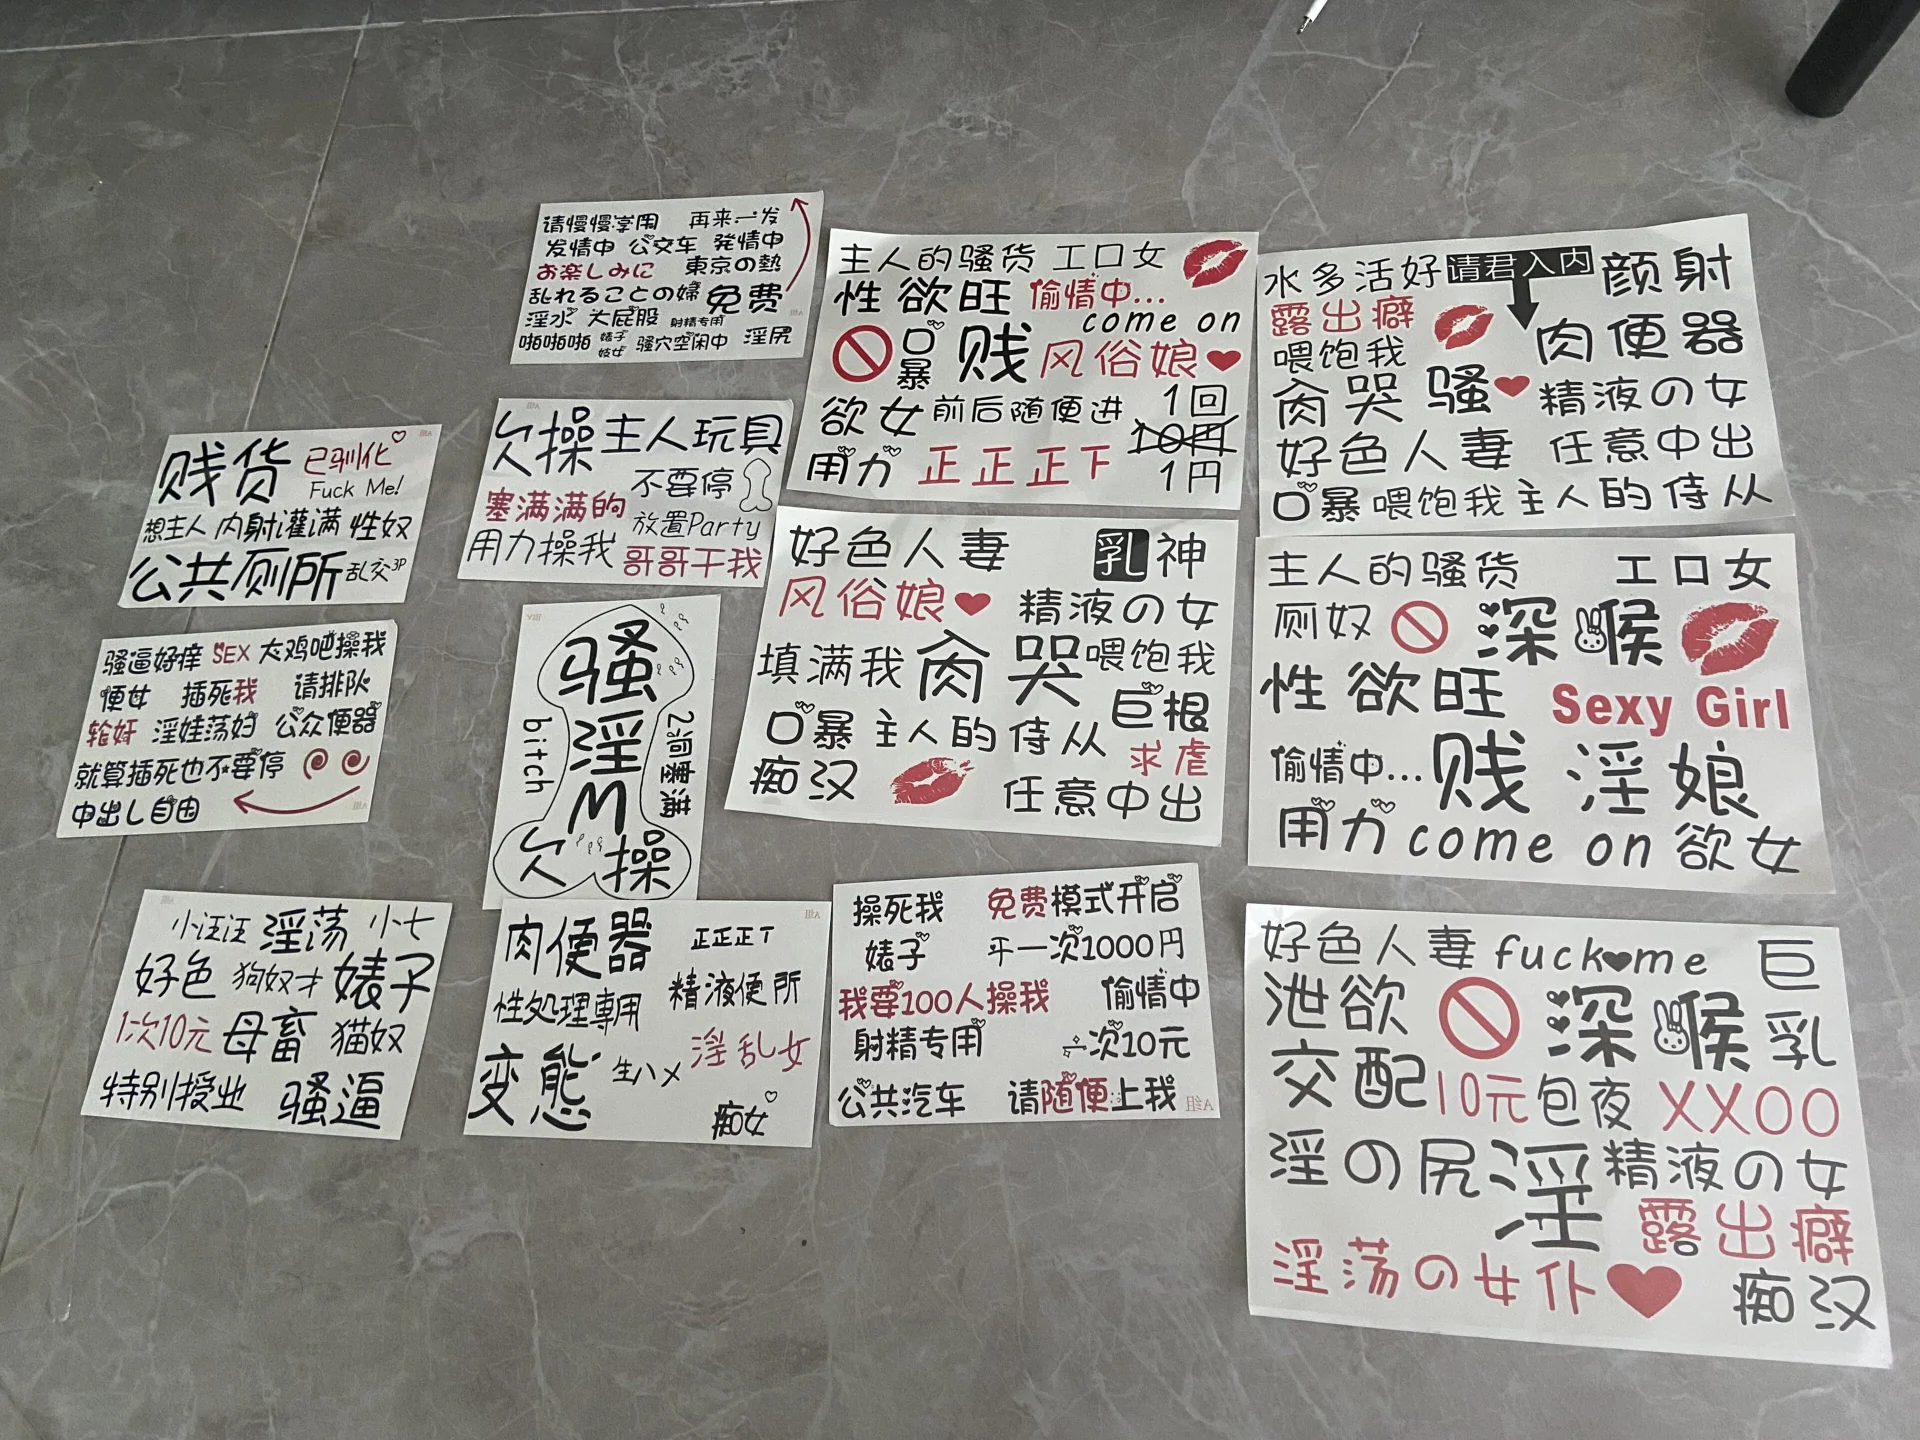 请慢慢享用 再来一发
发情中 公交车 発情中
お楽しみに 東京の熱
乱れることの婦 免费
淫水 大屁股 射精专用
啪啪啪 婊子 妓女 骚穴空闲中 淫尻
主人的骚货 工口女
性欲旺 偷情中...
come on
口暴 贱 风俗娘
欲女 前后随便进 1回
10円
用力 正正正下 1円
水多活好 请君入内 颜射
露出癖
喂饱我 肉便器
肏哭 骚 精液の女
好色人妻 任意中出
口暴 喂饱我 主人的侍从
贱货 已驯化
Fuck Me!
想主人 内射灌满 性奴
公共厕所 乱交3P
欠操 主人玩具
不要停
塞满满的 放置Party
用力操我 哥哥干我
好色人妻 乳神
风俗娘 精液の女
填满我 肏哭 喂饱我
巨根
口暴 主人的侍从 求虐
痴汉 任意中出
主人的骚货 工口女
厕奴 深喉
性欲旺 Sexy Girl
偷情中... 贱 淫娘
用力 come on 欲女
骚逼好痒 SEX 大鸡吧操我
便女 插死我 请排队
轮奸 淫娃荡妇 公众便器
就算插死也不要停
中出し自由
骚淫M欠操
bitch
2洞塞满
小汪汪 淫荡 小七
好色 狗奴才 婊子
1次10元 母畜 猫奴
特别授业 骚逼
肉便器 正正正T
性処理專用 精液便所
変態 生ハメ 淫乱女
痴女
A组
操死我 免费模式开启
婊子 平一次1000円
我要100人操我 偷情中
射精专用 一次10元
公共汽车 请随便上我
A组
好色人妻 fuck me 巨乳
泄欲 深喉
交配 10元包夜 XXOO
淫の尻 淫 精液の女
露出癖
淫荡の女仆 痴汉